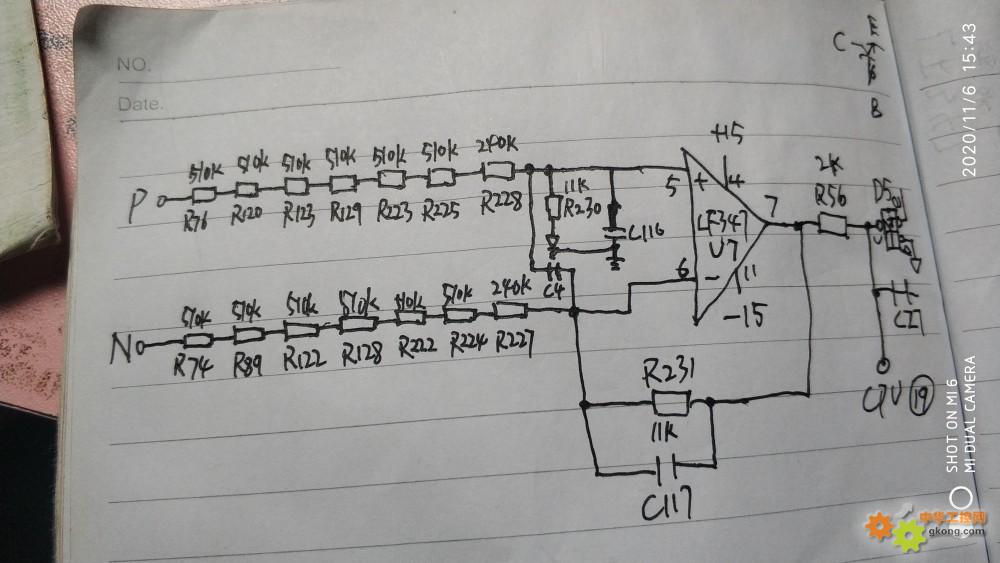 NO.
Date.
C
B
+15
510k 510k 510k 510k 510k 510k 240k
P R76 R120 R123 R129 R223 R225 R228
11K
R230
C116
C4
5 + 4
LF347
U7
7
6 - 11
-15
2K
R56
D5
C27
CPU 19
510k 510k 510k 510k 510k 510k 240k
N R74 R89 R122 R128 R222 R224 R227
R231
11K
C117
2020/11/6 15:43
SHOT ON MI 6
MI DUAL CAMERA
中华工控网
gkong.com